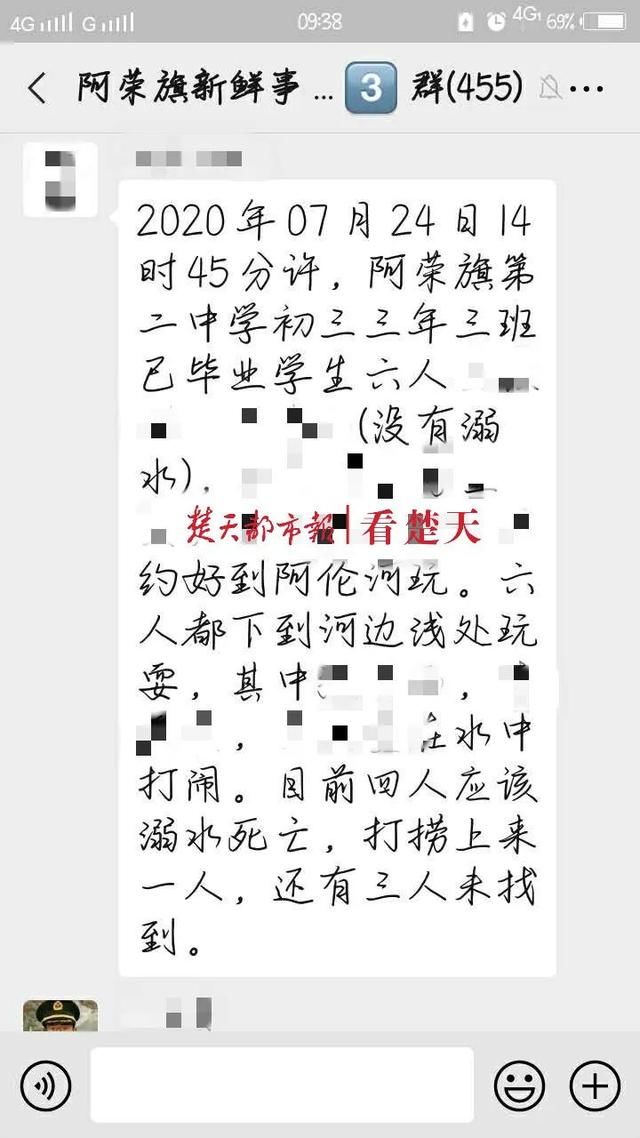 4G G 09:38 4G 69%
阿荣旗新鲜事 ... 3 群(455)
2020年07月24日14
时45分许，阿荣旗第
二中学初三三年三班
已毕业学生六人
(没有溺
水)，
楚天都市報 看楚天
约好到阿伦河玩。六
人都下到河边浅处玩
耍，其中，
，在水中
打闹。目前四人应该
溺水死亡，打捞上来
一人，还有三人未找
到。